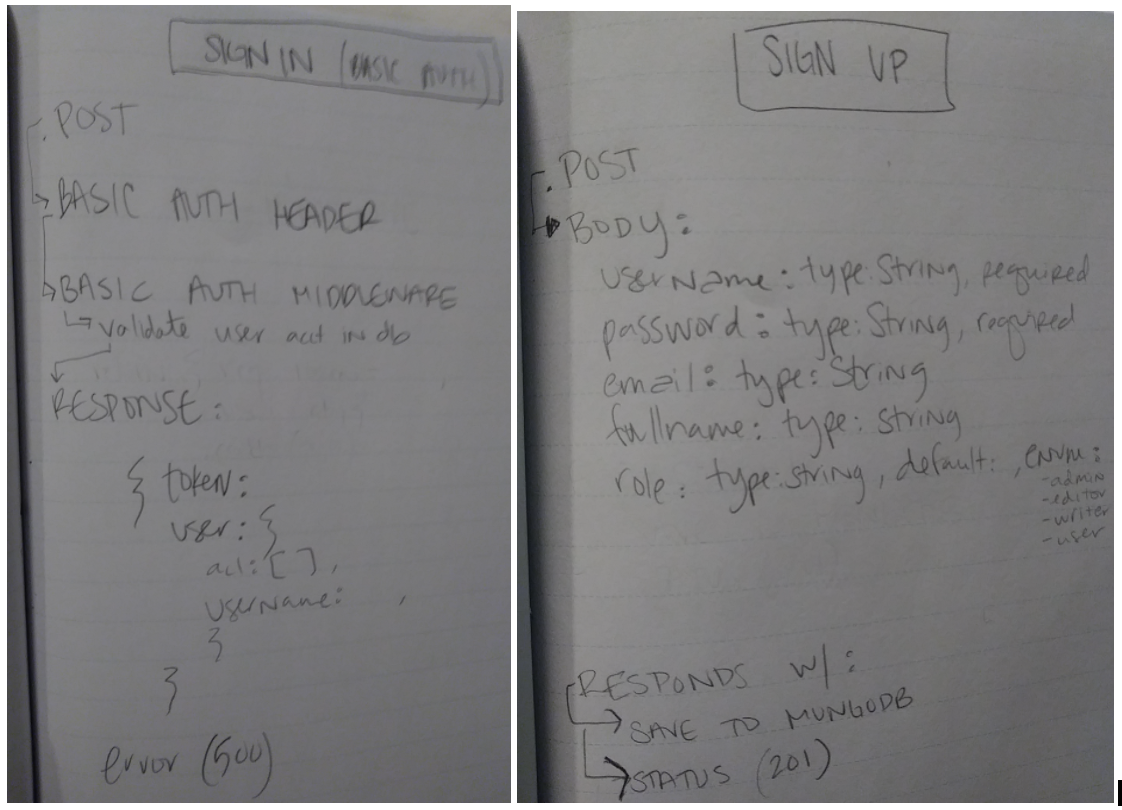 SIGN IN (BASIC AUTH)
. POST
BASIC AUTH HEADER
BASIC AUTH MIDDLEWARE
validate user acct in db
RESPONSE:
{ token:
user: {
acl: [ ],
username: ,
}
}
error (500)
SIGN UP
. POST
BODY:
username: type: String, required
password: type: String, required
email: type: String
fullname: type: String
role: type: string, default: , enum:
-admin
-editor
-writer
-user
RESPONDS w/:
SAVE TO MUNGODB
STATUS (201)